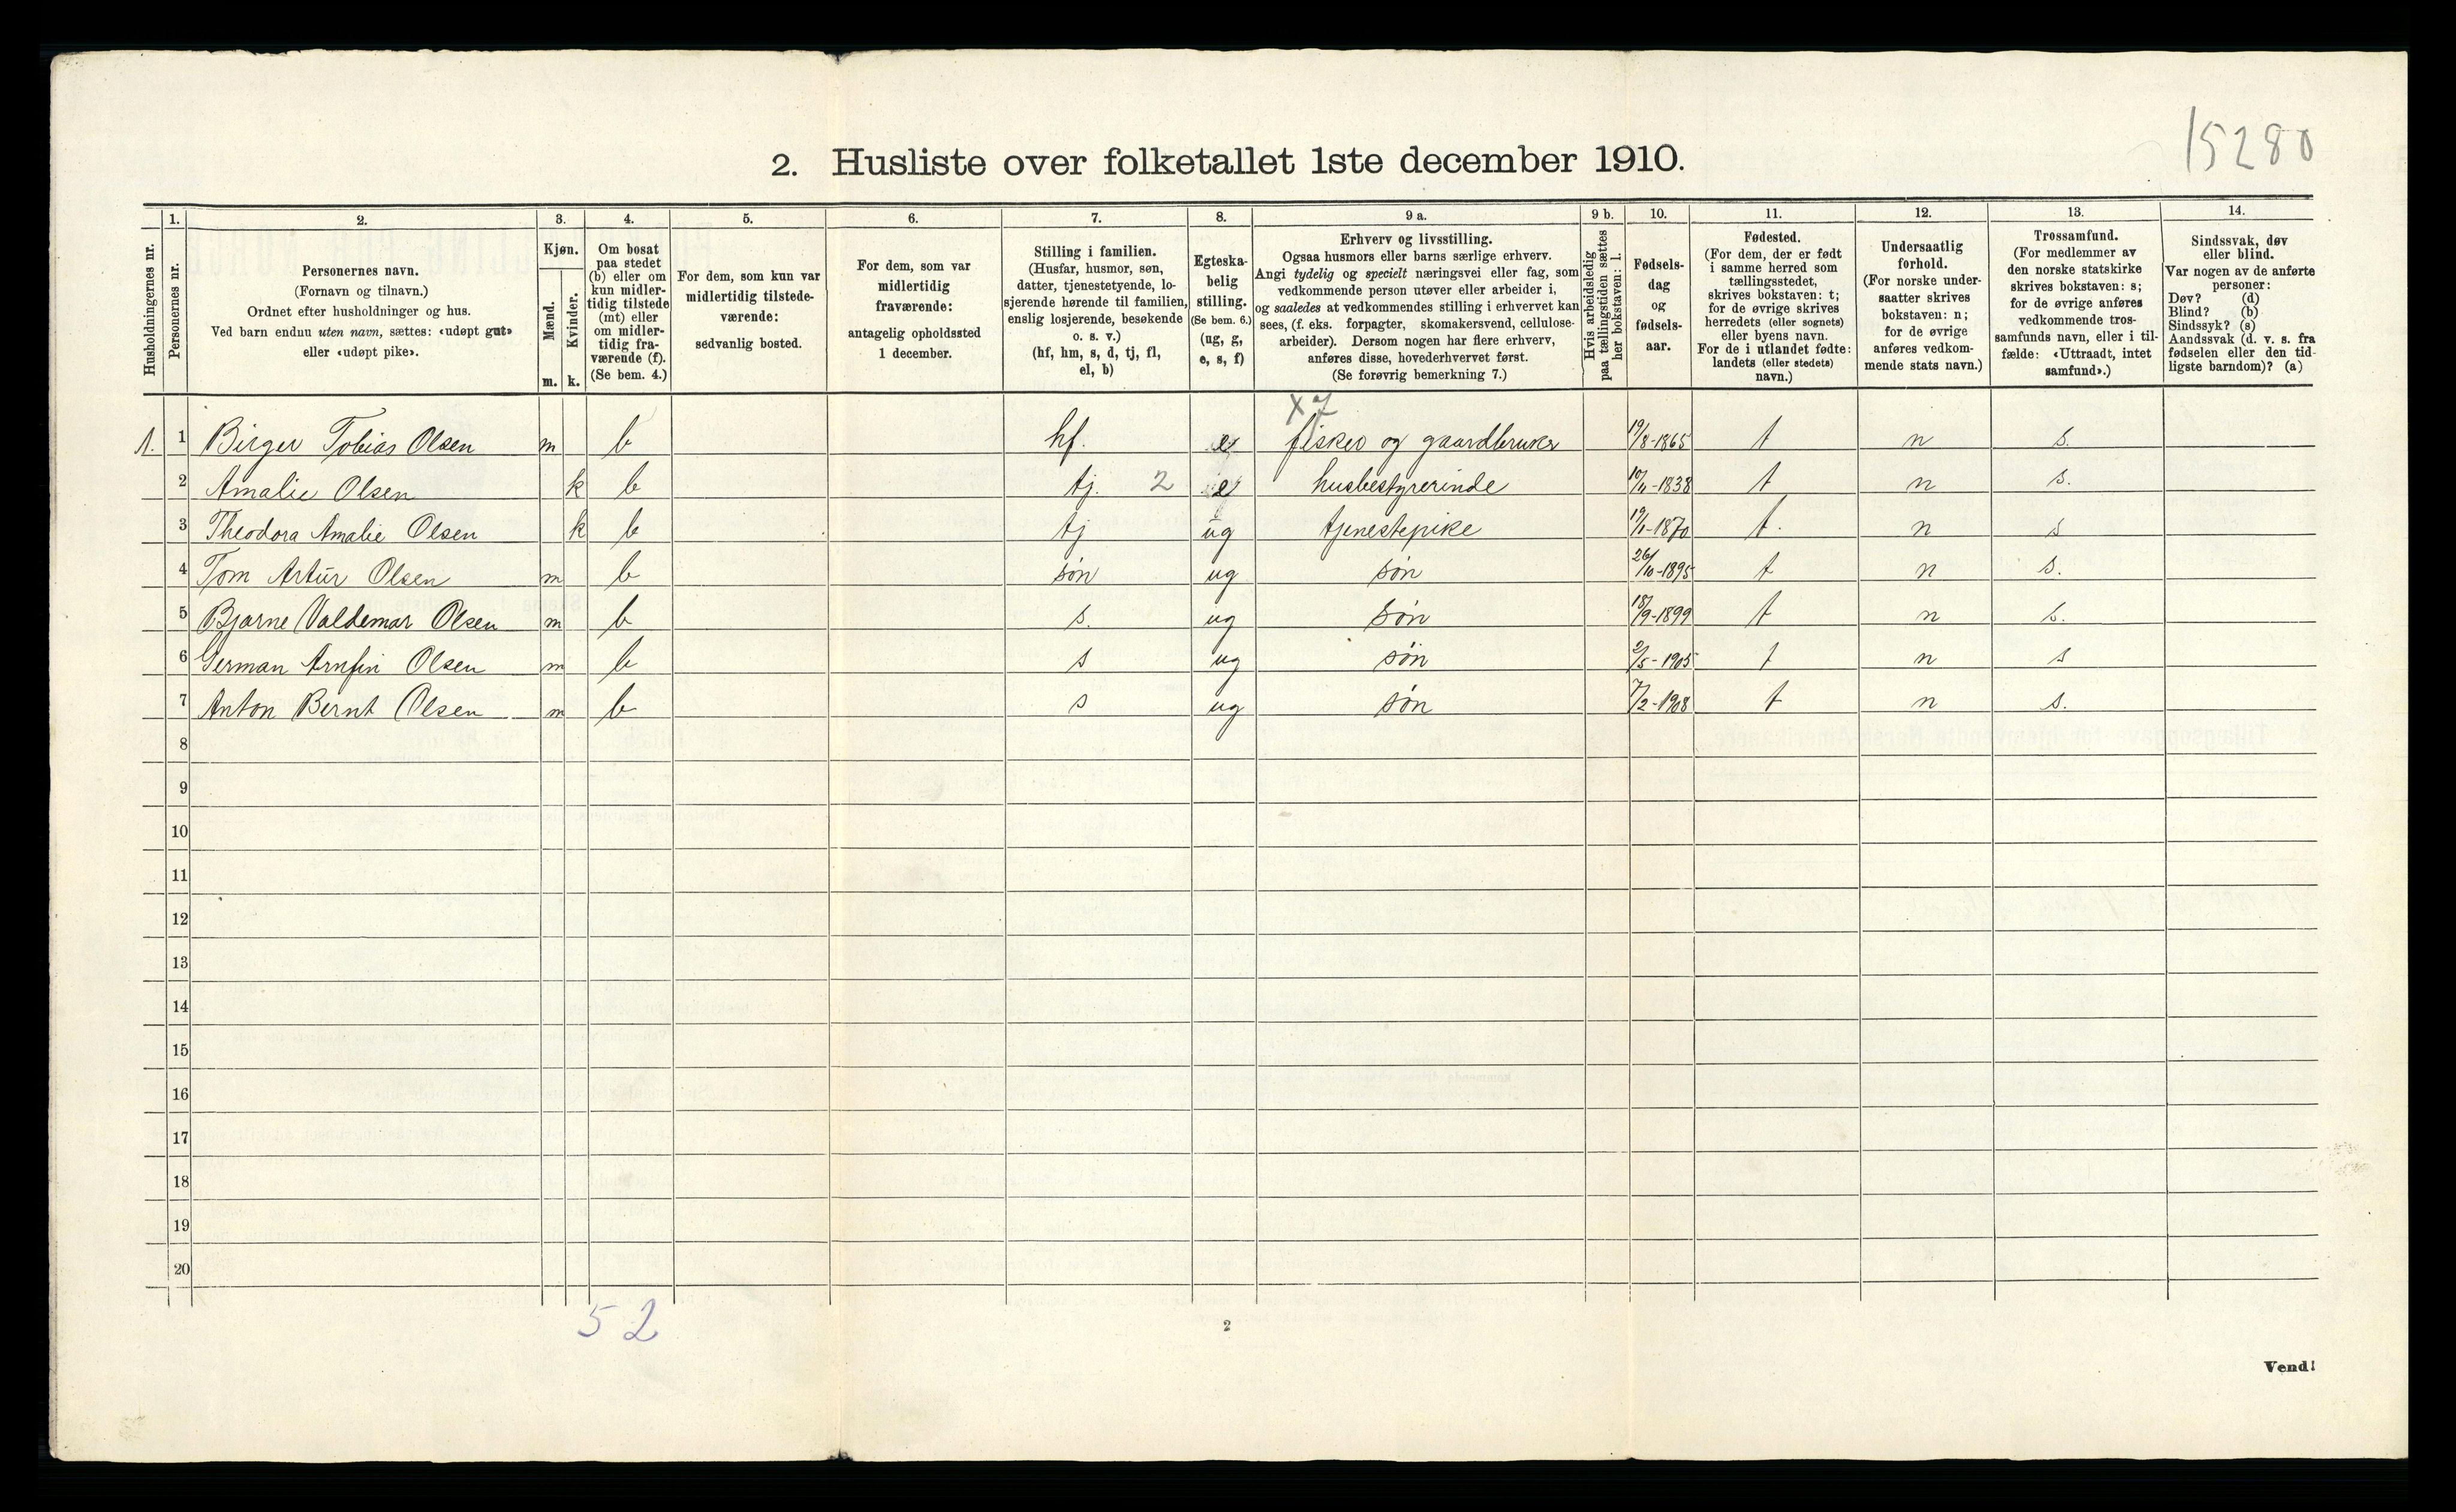 15280
2. Husliste over folketallet 1ste december 1910.
Husholdningernes nr.
1.
Personernes nr.
2.
Personernes navn.
(Fornavn og tilnavn.)
Ordnet efter husholdninger og hus.
Ved barn endnu uten navn, sættes: «udøpt gut»
eller «udøpt pike».
3.
Kjøn.
Mænd.
Kvinder.
m. k.
4.
Om bosat
paa stedet
(b) eller om
kun midler-
tidig tilstede
(mt) eller
om midler-
tidig fra-
værende (f).
(Se bem. 4.)
5.
For dem, som kun var
midlertidig tilstede-
værende:
sedvanlig bosted.
6.
For dem, som var
midlertidig
fraværende:
antagelig opholdssted
1 december.
7.
Stilling i familien.
(Husfar, husmor, søn,
datter, tjenestetyende, lo-
sjerende hørende til familien,
enslig losjerende, besøkende
o. s. v.)
(hf, hm, s, d, tj, fl,
el, b)
8.
Egteska-
belig
stilling.
(Se bem. 6.)
(ug, g,
e, s, f)
9 a.
Erhverv og livsstilling.
Ogsaa husmors eller barns særlige erhverv.
Angi tydelig og specielt næringsvei eller fag, som
vedkommende person utøver eller arbeider i,
og saaledes at vedkommendes stilling i erhvervet kan
sees, (f. eks. forpagter, skomakersvend, cellulose-
arbeider). Dersom nogen har flere erhverv,
anføres disse, hovederhvervet først.
(Se forøvrig bemerkning 7.)
9 b.
Hvis arbeidsledig
paa tællingstiden sættes
her bokstaven: l.
10.
Fødsels-
dag
og
fødsels-
aar.
11.
Fødested.
(For dem, der er født
i samme herred som
tællingsstedet,
skrives bokstaven: t;
for de øvrige skrives
herredets (eller sognets)
eller byens navn.
For de i utlandet fødte:
landets (eller stedets)
navn.)
12.
Undersaatlig
forhold.
(For norske under-
saatter skrives
bokstaven: n;
for de øvrige
anføres vedkom-
mende stats navn.)
13.
Trossamfund.
(For medlemmer av
den norske statskirke
skrives bokstaven: s;
for de øvrige anføres
vedkommende tros-
samfunds navn, eller i til-
fælde: «Uttraadt, intet
samfund».)
14.
Sindssvak, døv
eller blind.
Var nogen av de anførte
personer:
Døv? (d)
Blind? (b)
Sindssyk? (s)
Aandssvak (d. v. s. fra
fødselen eller den tid-
ligste barndom)? (a)
X 7
1. 1 Birger Tobias Olsen m b hf. e fisker og gaardbruker 19/8-1865 t n s.
2 Amalie Olsen k b tj. 2 e husbestyrerinde 10/4-1838 t n s.
3 Theodora Amalie Olsen k b tj ug tjenestepike 19/1-1870 t. n s
4 Tom Artur Olsen m b søn ug søn 26/10-1895 t n s.
5 Bjarne Valdemar Olsen m b s. ug søn 18/9-1899 t n s.
6 German Arnfin Olsen m b s ug søn 2/5-1905 t n s
7 Anton Bernt Olsen m b s ug søn 7/2-1908 t n s.
8
9
10
11
12
13
14
15
16
17
18
19
20
5 2
2
Vend!